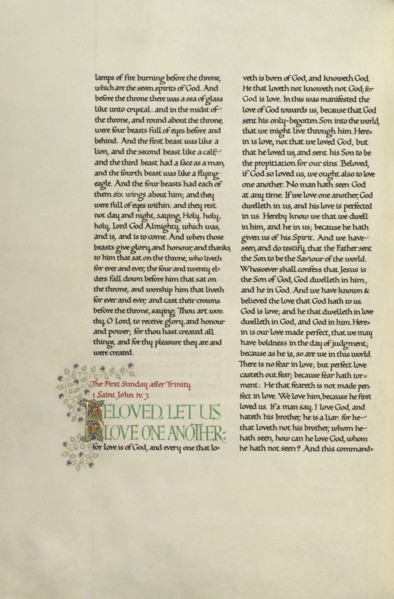 lamps of fire burning before the throne,
which are the seven spirits of God. And
before the throne there was a sea of glass
like unto crystal: and in the midst of
the throne, and round about the throne,
were four beasts full of eyes before and
behind. And the first beast was like a
lion, and the second beast like a calf,
and the third beast had a face as a man,
and the fourth beast was like a flying
eagle. And the four beasts had each of
them six wings about him; and they
were full of eyes within: and they rest
not day and night, saying, Holy, holy,
holy, Lord God Almighty, which was,
and is, and is to come. And when those
beasts give glory, and honour, and thanks,
to him that sat on the throne, who liveth
for ever and ever, the four and twenty el-
ders fall down before him that sat on
the throne, and worship him that liveth
for ever and ever, and cast their crowns
before the throne, saying, Thou art wor-
thy, O Lord, to receive glory, and honour,
and power; for thou hast created all
things, and for thy pleasure they are and
were created.
The First Sunday after Trinity.
1 Saint John iv. 7.
BELOVED, LET US
LOVE ONE ANOTHER:
for love is of God, and every one that lo-
veth is born of God, and knoweth God.
He that loveth not knoweth not God, for
God is love. In this was manifested the
love of God towards us, because that God
sent his only-begotten Son into the world,
that we might live through him. Here-
in is love, not that we loved God, but
that he loved us, and sent his Son to be
the propitiation for our sins. Beloved,
if God so loved us, we ought also to love
one another. No man hath seen God
at any time. If we love one another, God
dwelleth in us, and his love is perfected
in us. Hereby know we that we dwell
in him, and he in us; because he hath
given us of his Spirit. And we have
seen, and do testify, that the Father sent
the Son to be the Saviour of the world.
Whosoever shall confess that Jesus is
the Son of God, God dwelleth in him,
and he in God. And we have known &
believed the love that God hath to us.
God is love; and he that dwelleth in love
dwelleth in God, and God in him. Here-
in is our love made perfect, that we may
have boldness in the day of judgment,
because as he is, so are we in this world.
There is no fear in love; but perfect love
casteth out fear; because fear hath tor-
ment: He that feareth is not made per-
fect in love. We love him, because he first
loved us. If a man say, I love God, and
hateth his brother, he is a liar: for he
that loveth not his brother, whom he
hath seen, how can he love God, whom
he hath not seen? And this command-